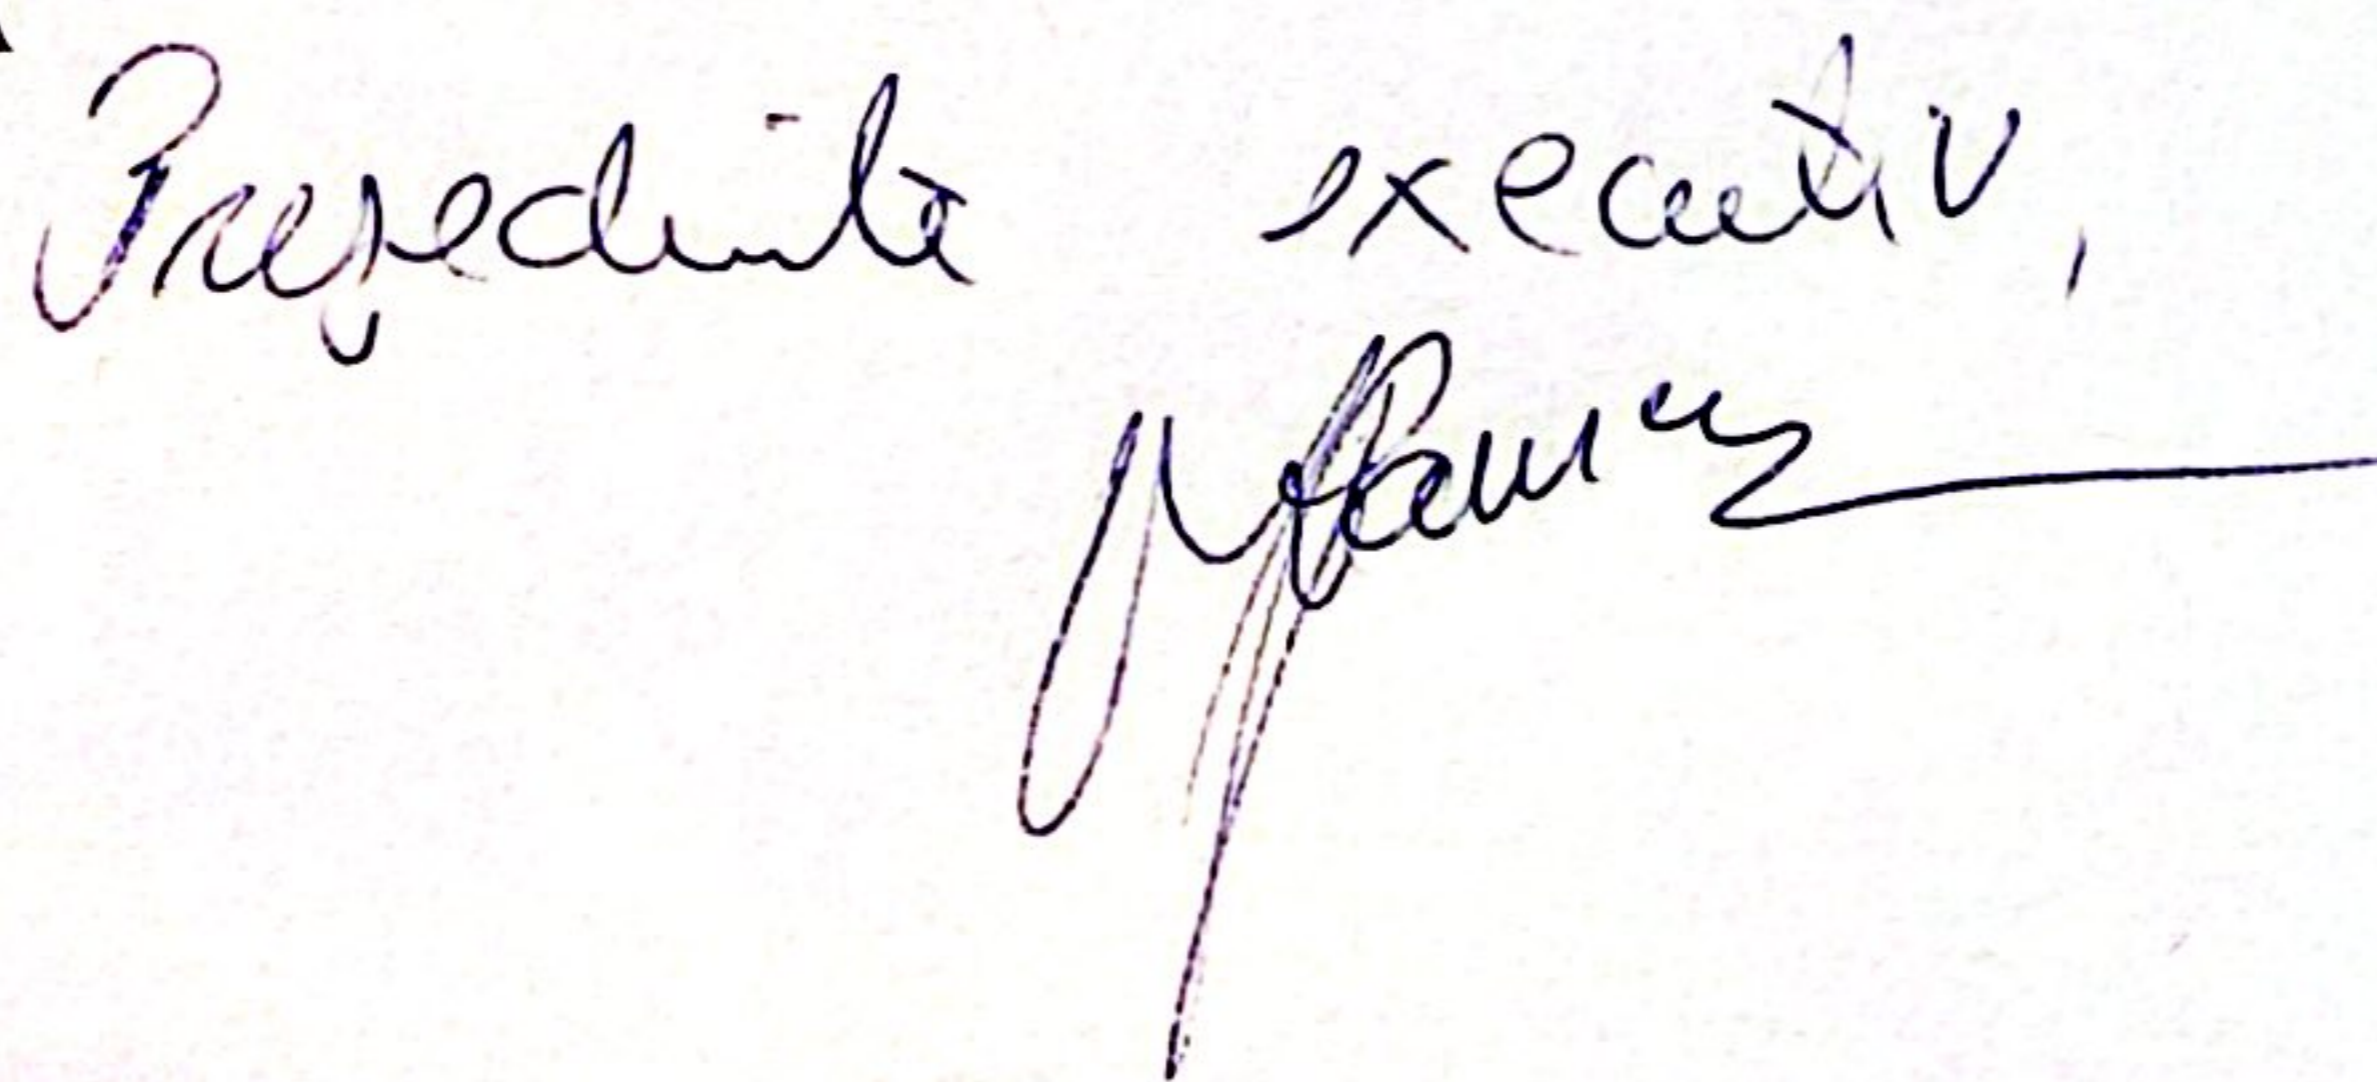 Președinte executiv,